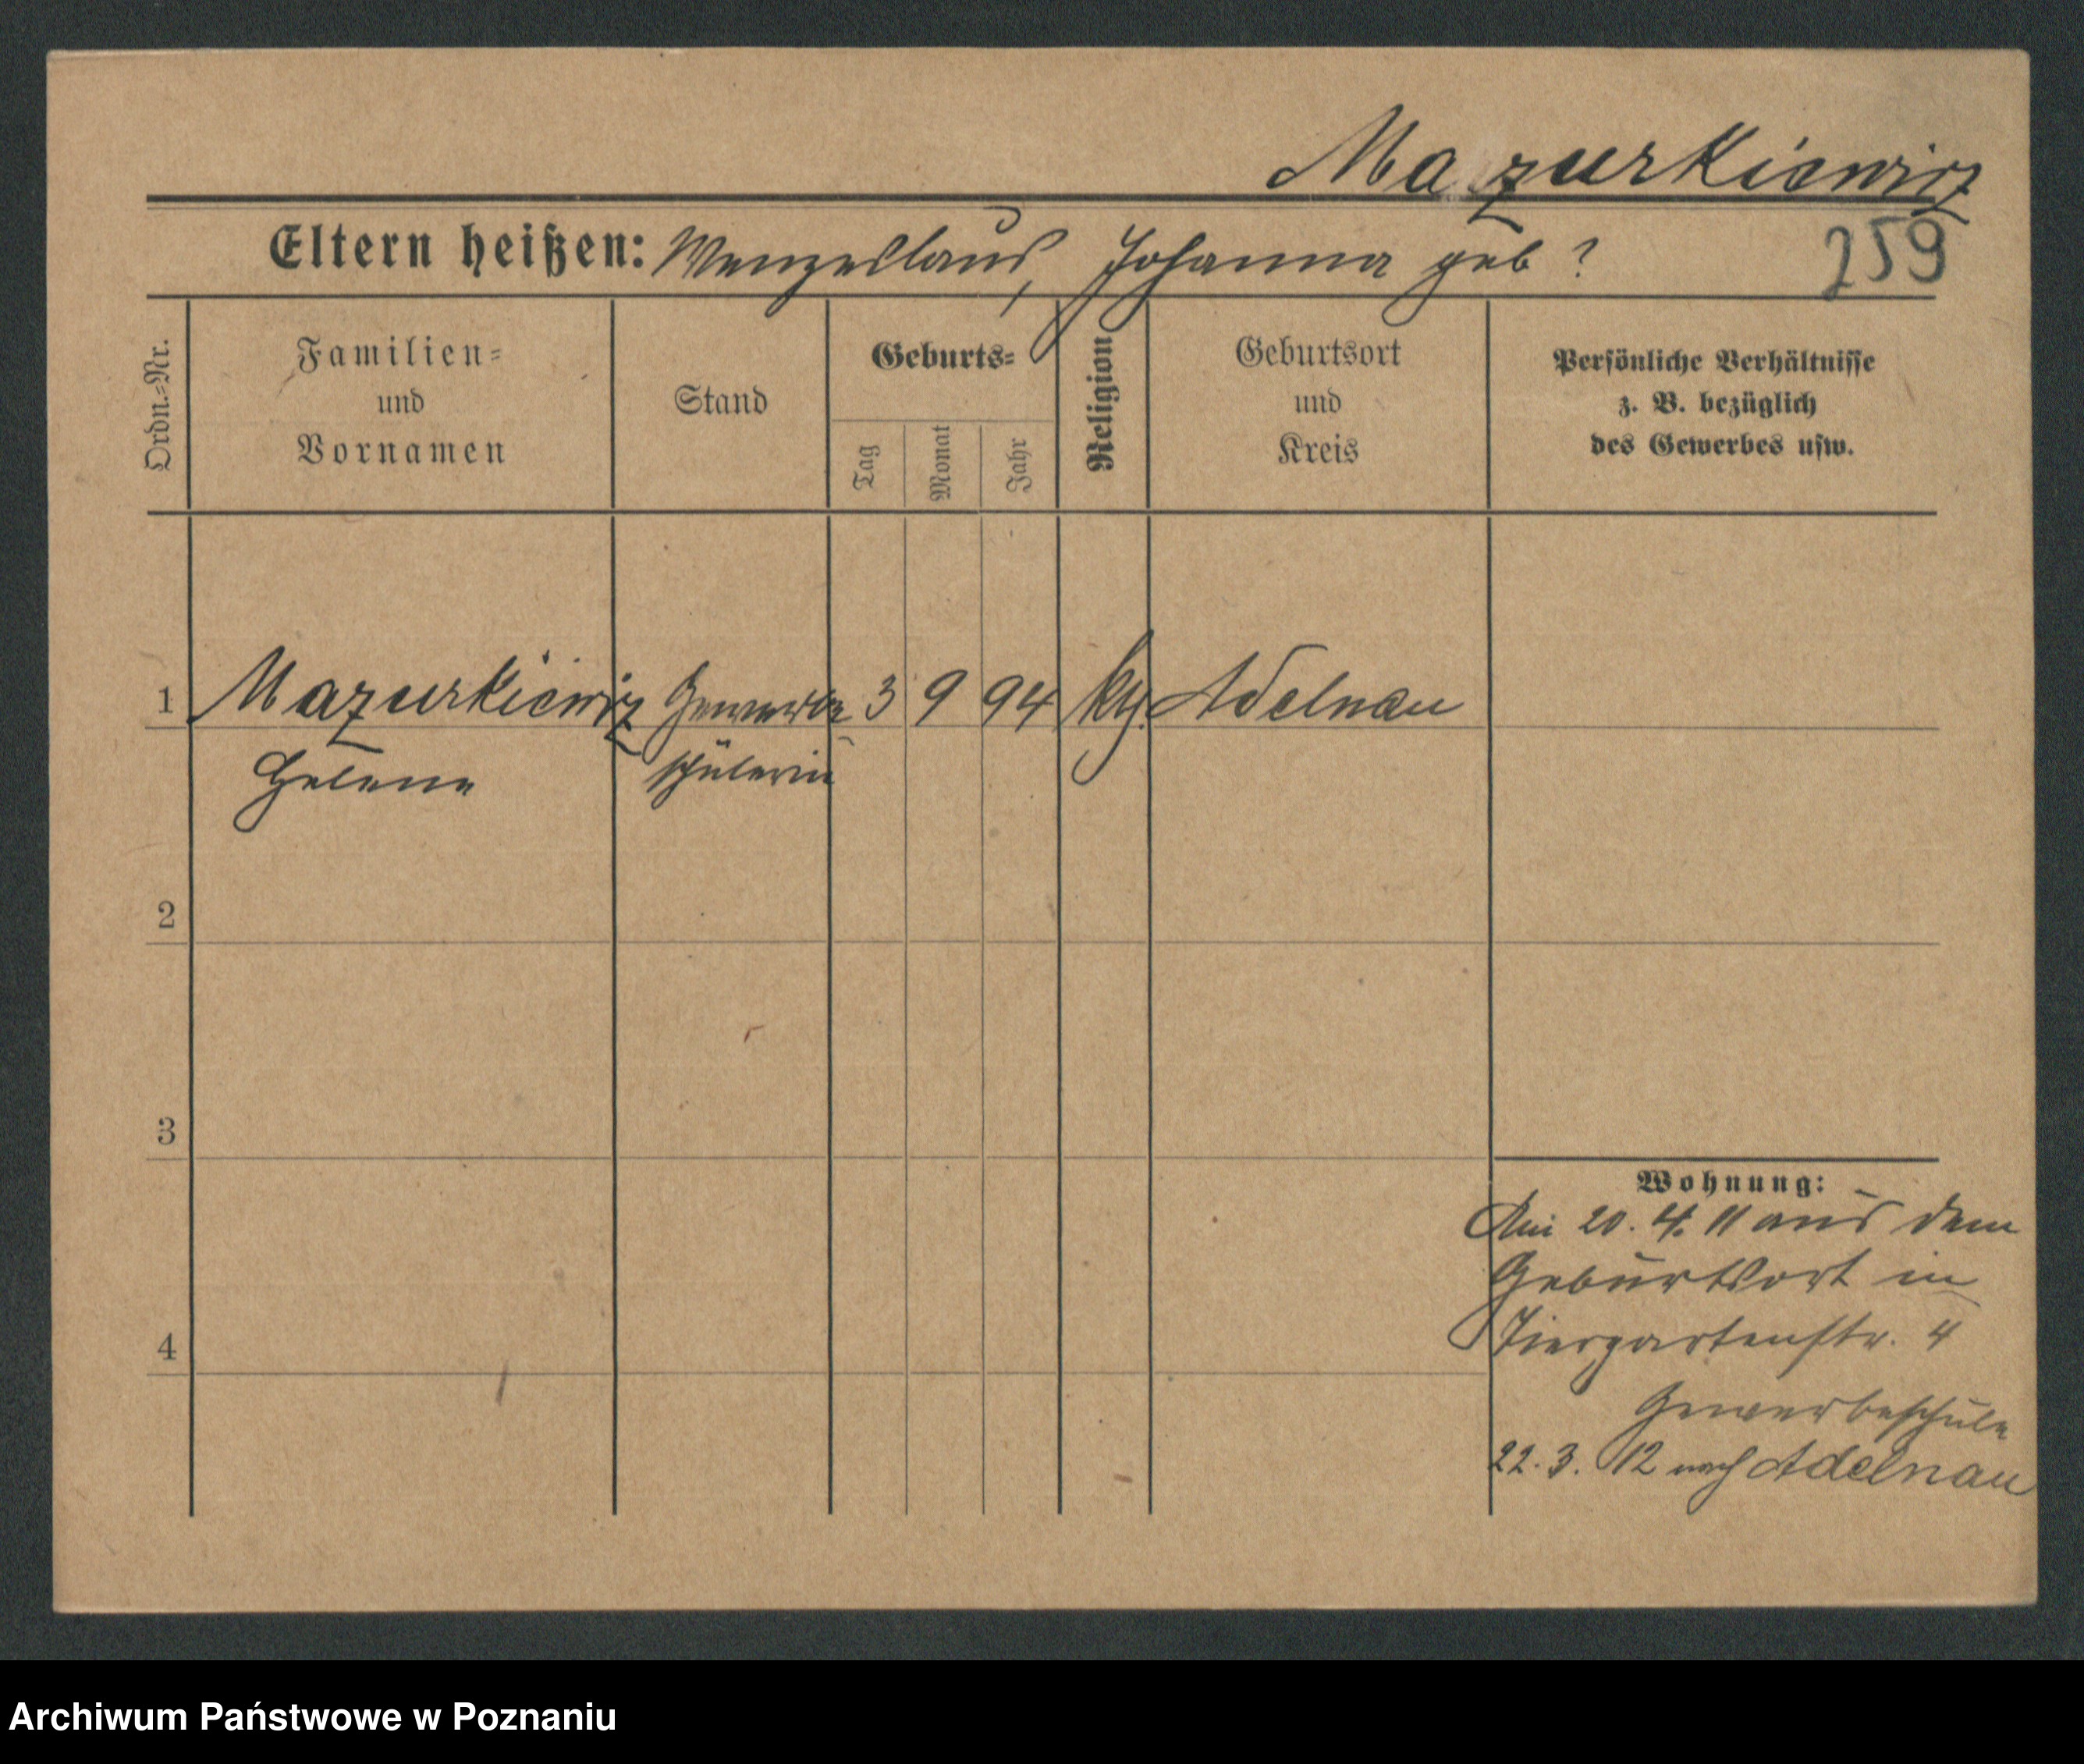 Mazurkiewicz
Eltern heißen: Wenzeslaus, Johanna geb ?
259
Ordn.=Nr.
Familien=
und
Vornamen
Stand
Geburts=
Tag
Monat
Jahr
Religion
Geburtsort
und
Kreis
Persönliche Verhältnisse
z. B. bezüglich
des Gewerbes usw.
1 Mazurkiewicz Gewerbe 3 9 94 Adelnau
Helene schülerin
2
3
4
Wohnung:
Am 20. 4. 11 aus dem
Geburtsort in
Tiergartenstr. 4
Gewerbeschule
22. 3. 12 nach Adelnau
Archiwum Państwowe w Poznaniu